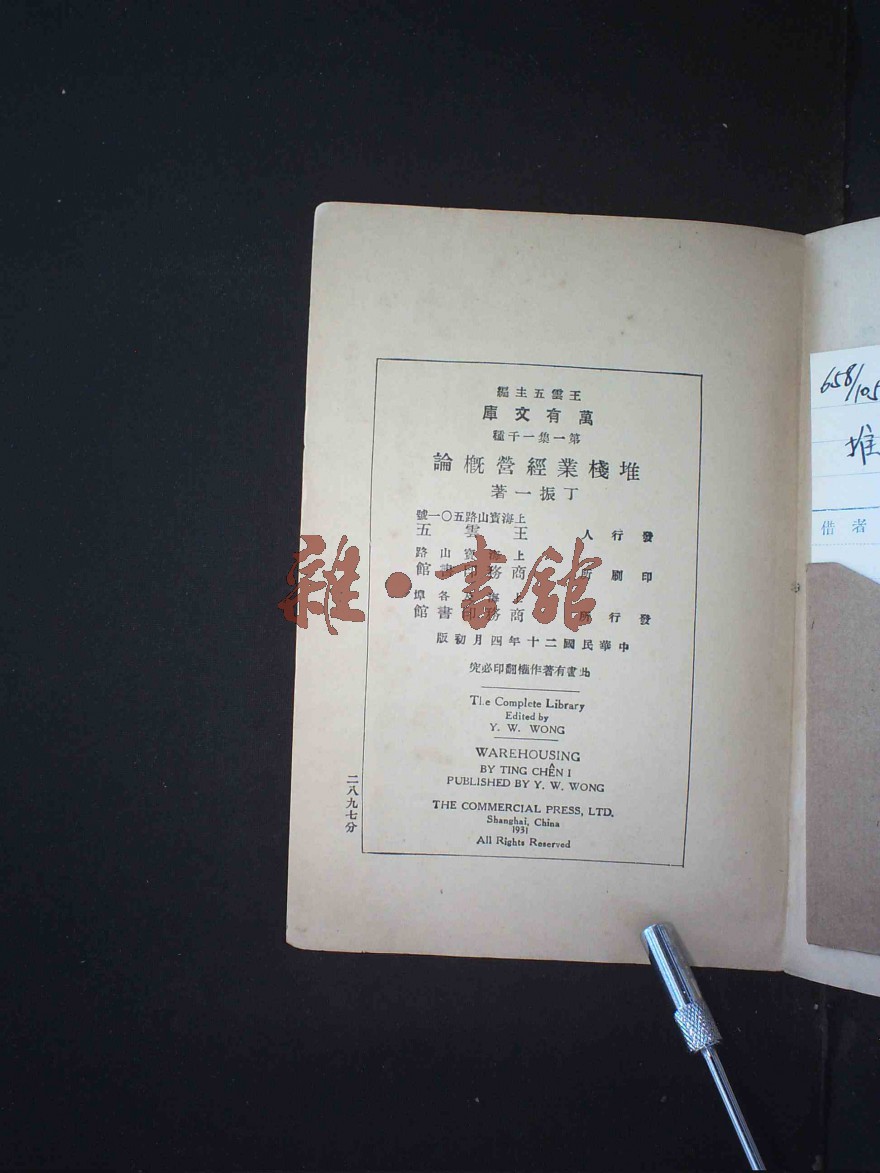 王雲五主編
萬有文庫
第一集一千種
堆棧業經營概論
丁振一著
上海寶山路五〇一號
發行人 王雲五
上海寶山路
印刷所 商務印書館
上海及各埠
發行所 商務印書館
中華民國二十年四月初版
此書有著作權翻印必究
The Complete Library
Edited by
Y. W. WONG
WAREHOUSING
BY TING CHÊN I
PUBLISHED BY Y. W. WONG
THE COMMERCIAL PRESS, LTD.
Shanghai, China
1931
All Rights Reserved
二八九七分
658/105
堆
借者
雜·書館